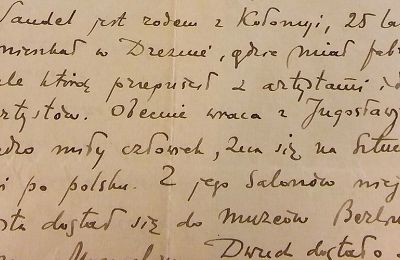 Sandel jest rodem z Kołomyi, 25 la
mieszkał w Dreźnie, gdzie miał fab
ale którą przepuścił z artystami i d
artystów. Obecnie wraca z Jugosław
miły człowiek, zna się na sztuc
i po polsku. Z jego salonów miej
dostał się do muzeów Berl
Dwóch dostało